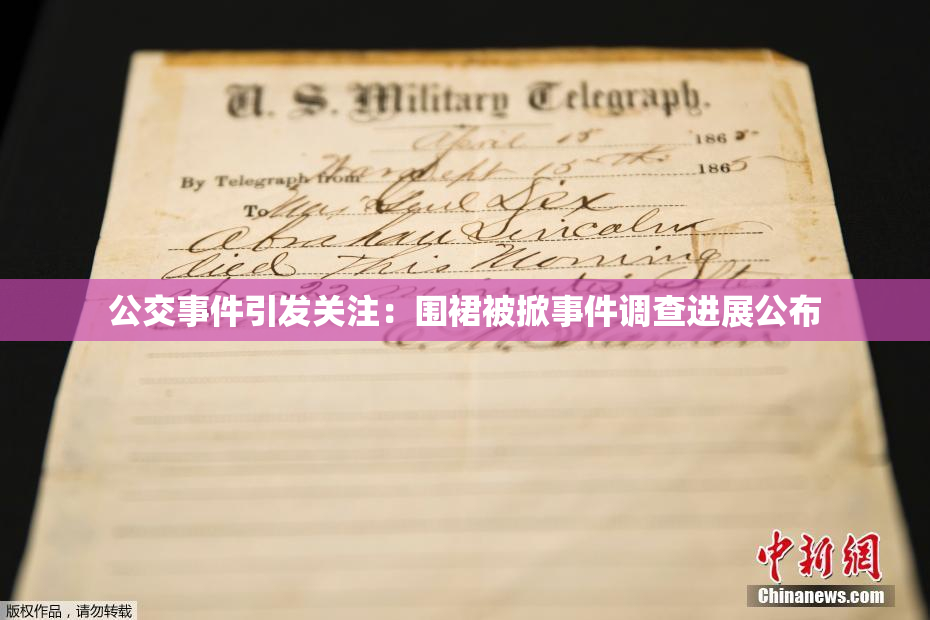 U. S. Military Telegraph.
April 15 1865.
By Telegraph from War Dept 15th 1865
To Maj Genl Dix
Abraham Lincoln
died This Morning
22 minutes after
公交事件引发关注：围裙被掀事件调查进展公布
E. M. Stanton
中新网
Chinanews.com
版权作品，请勿转载